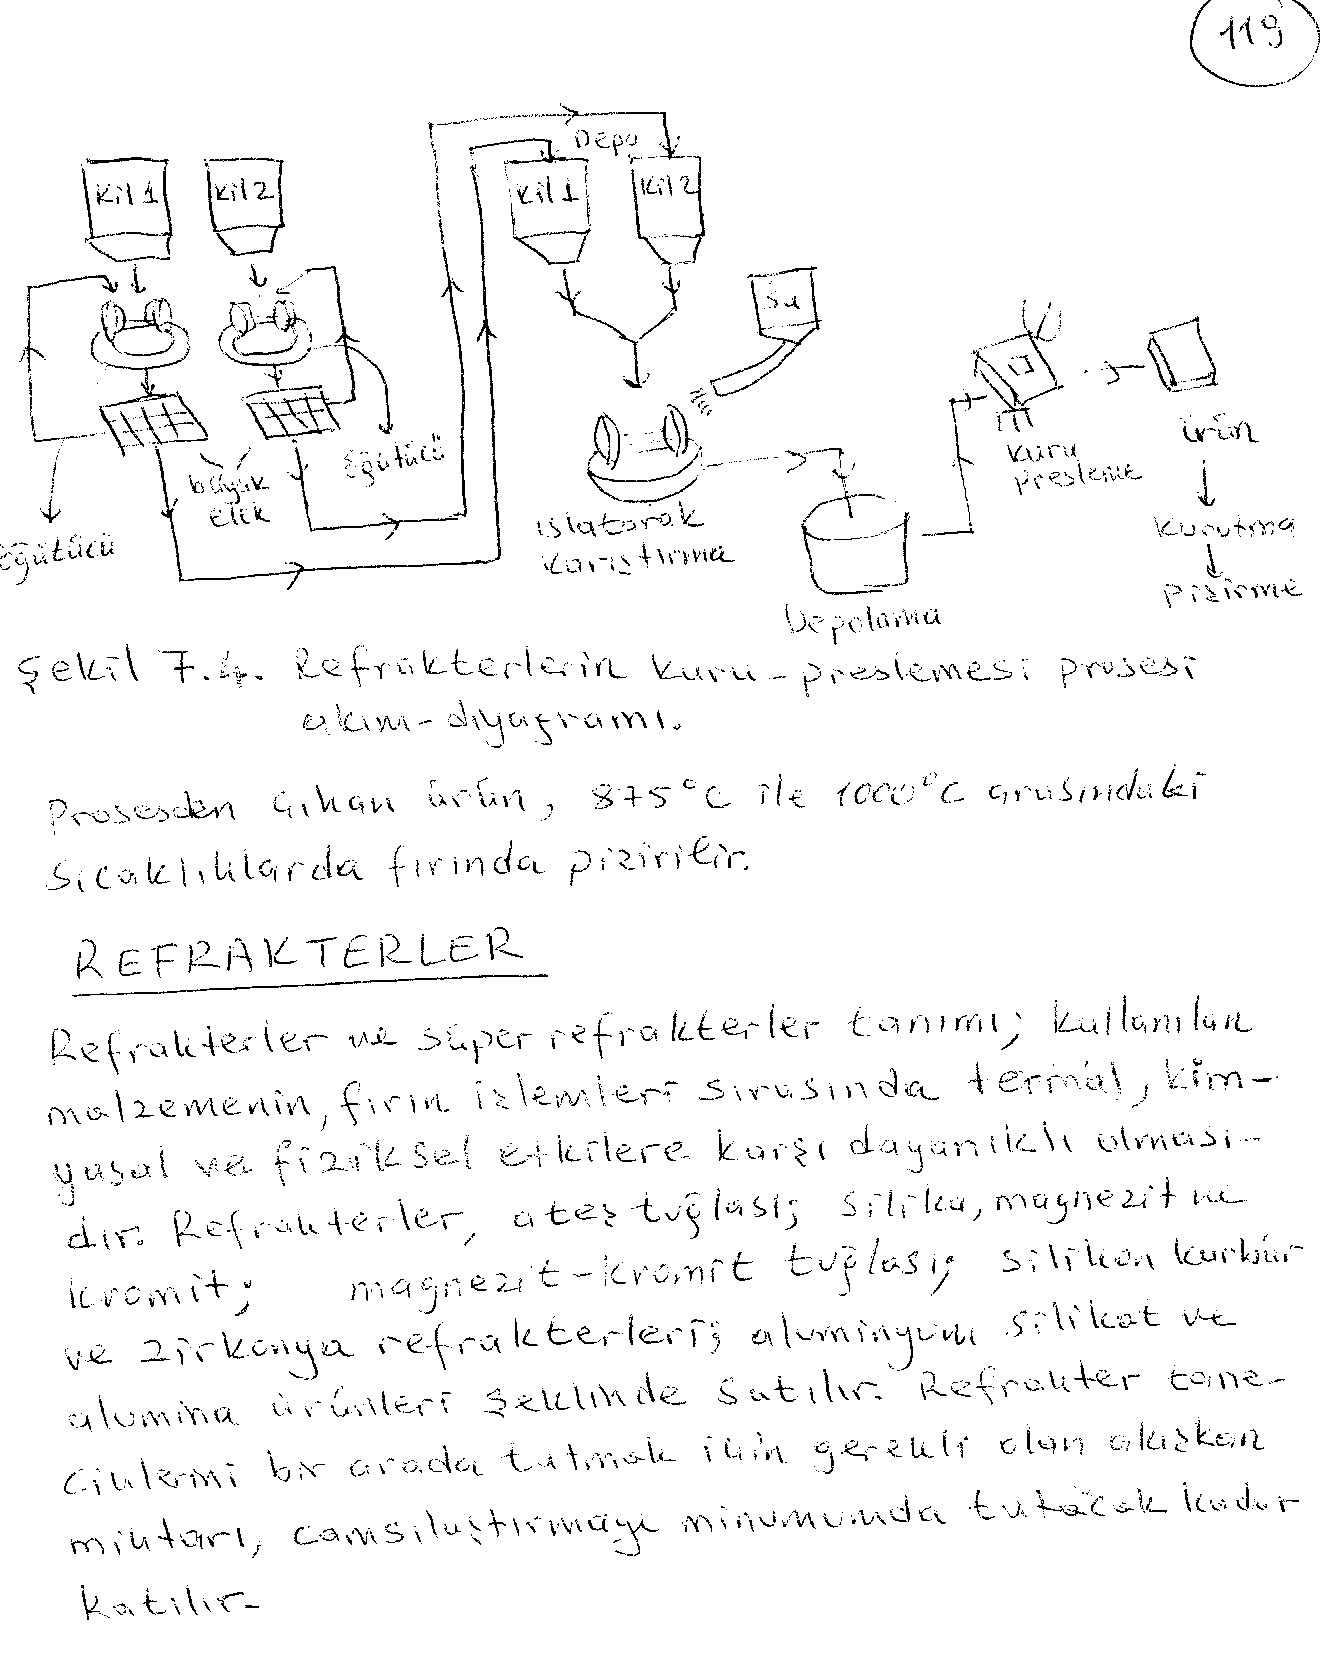 119
Depo
Kil 1
Kil 2
Kil 1
Kil 2
Su
Öğütücü
büyük
elek
Öğütücü
ıslatarak
karıştırma
Depolama
kuru
presleme
ürün
kurutma
pişirme
Şekil 7.4. Refrakterlerin kuru-preslemesi prosesi
akım-diyagramı.
Prosesden çıkan ürün, 875°C ile 1000°C arasındaki
sıcaklıklarda fırında pişirilir.
REFRAKTERLER
Refrakterler ve süper refrakterler tanımı; kullanılan
malzemenin, fırın işlemleri sırasında termal, kim-
yasal ve fiziksel etkilere karşı dayanıklı olması-
dır. Refrakterler, ateş tuğlası; silika, magnezit ve
kromit; magnezit-kromit tuğlası; silikon karbür
ve zirkonya refrakterleri; aluminyum silikat ve
alumina ürünleri şeklinde satılır. Refrakter tane-
ciklerini bir arada tutmak için gerekli olan akışkan
miktarı, camsılaştırmayı minumumda tutacak kadar
katılır.